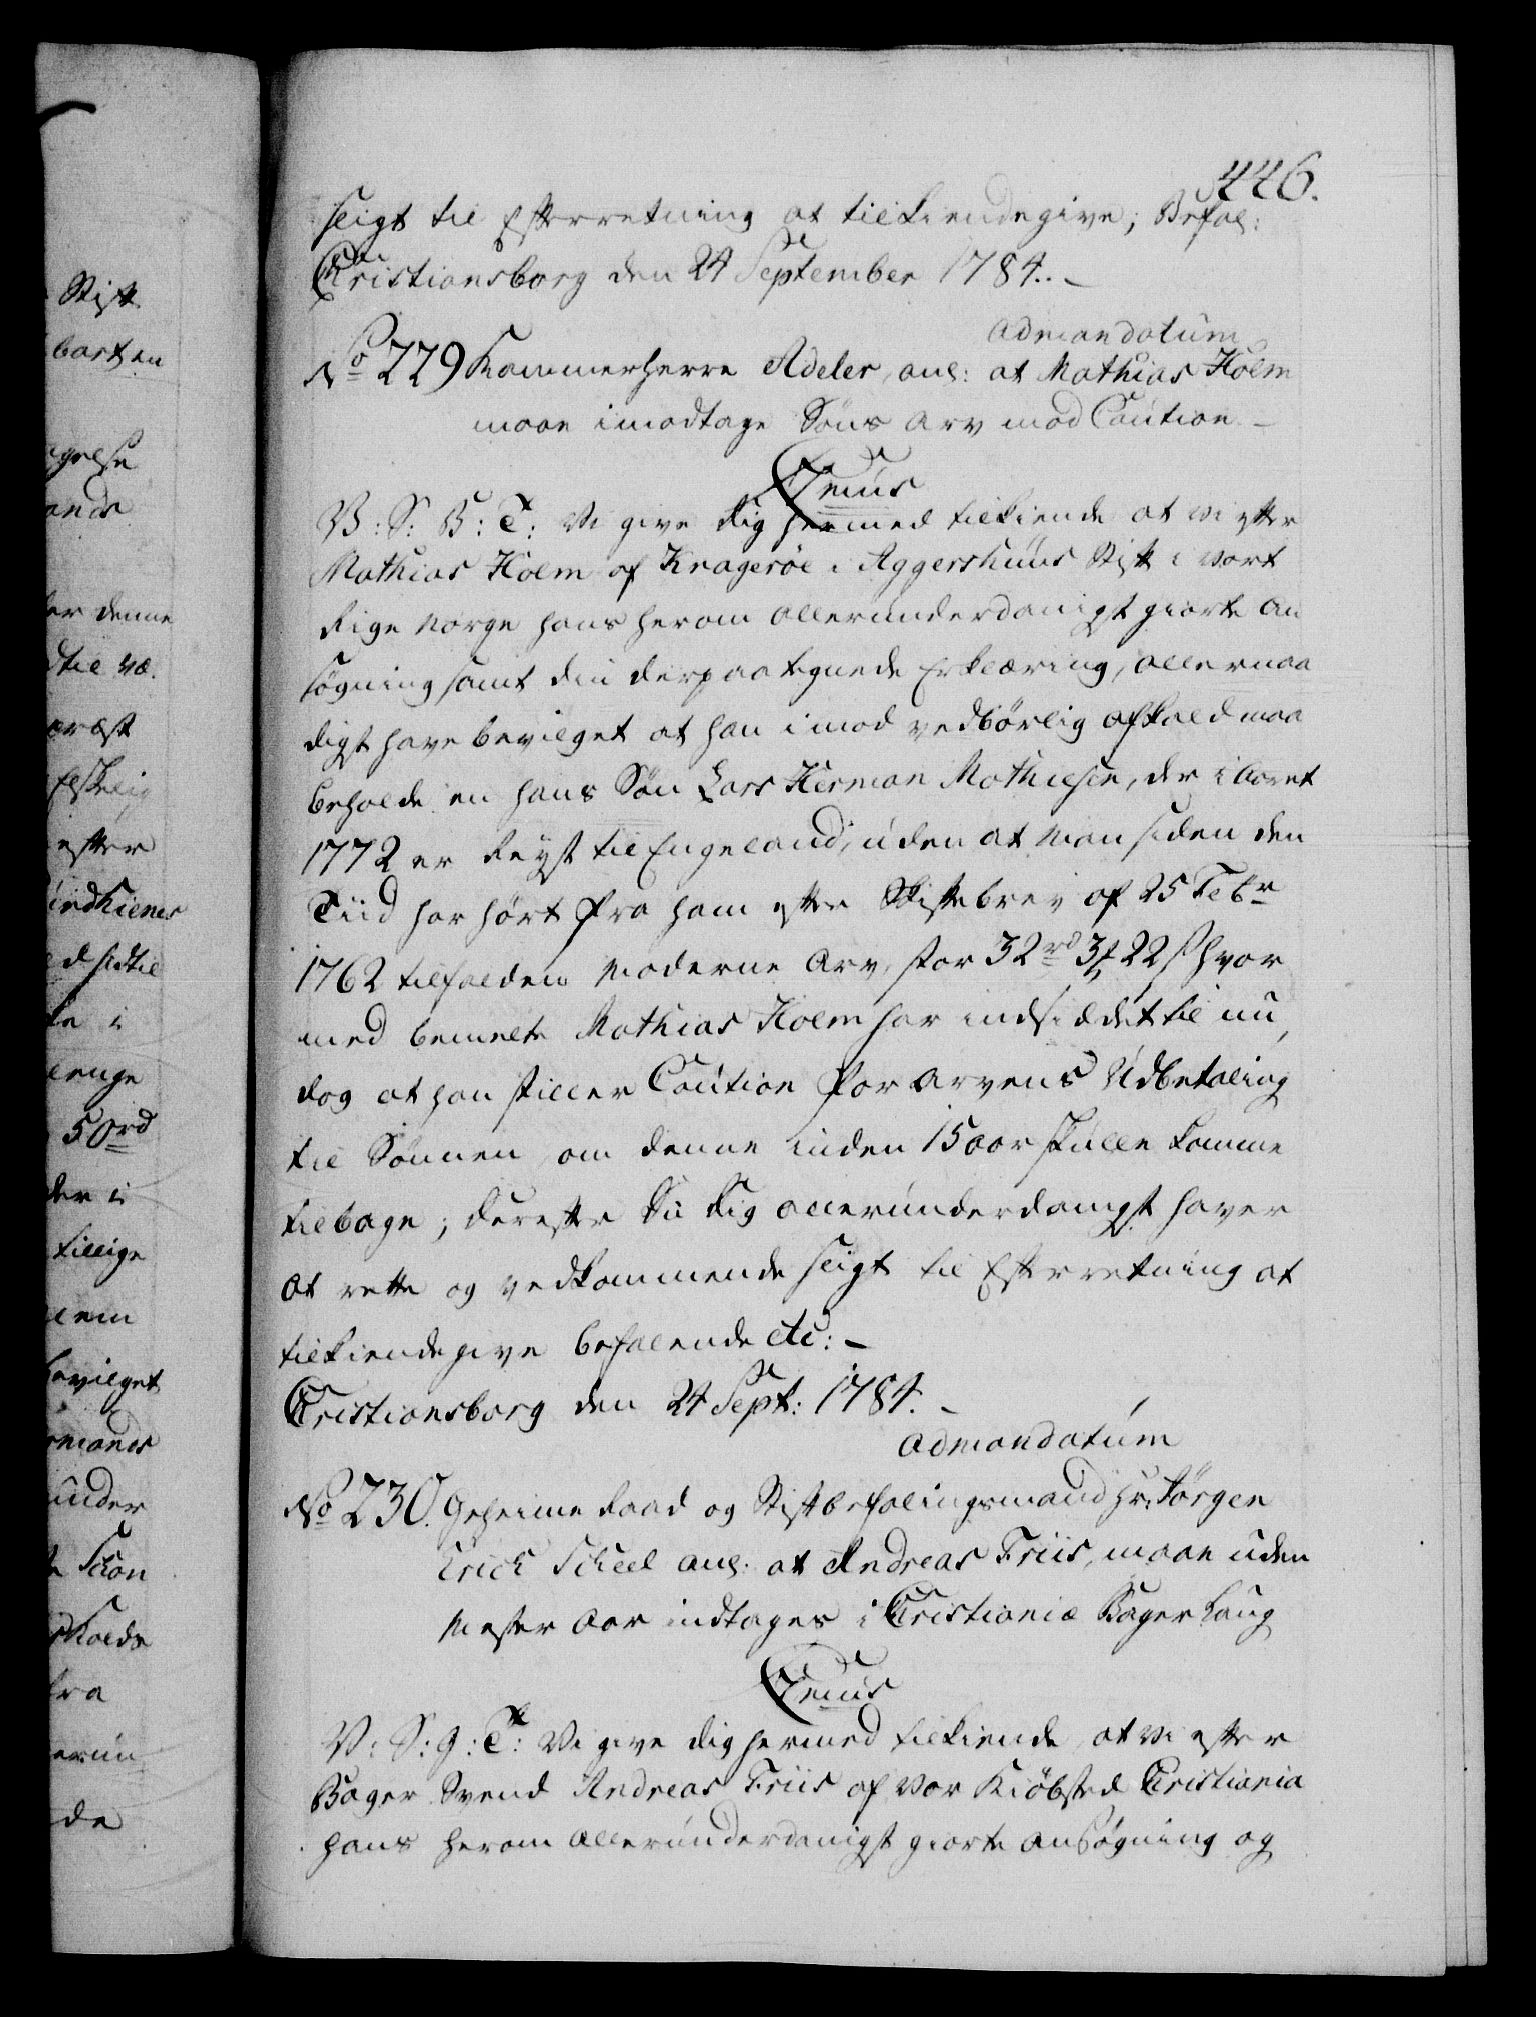 446.
seigt til Efterretning at tilkiendegive; Befal:
Christiansborg den 24 September 1784. -
admandatum
No 229 Kammerherre Adeler, ang: at Mathias Holm
maae imodtage Søns Arv mod Caution -
C7mus
V: S: B: T: Vi give dig hermed tilkiende at vi efter
Mathias Holm af Kragerøe i Aggershuus Stift i vort
Rige Norge hans herom allerunderdanigst giorte An
søgning samt din derpaa tegnede Erklæring, allernaa
digst have bevilget at han imod vedbørlig afkald maa
beholde en hans Søn Lars Herman Mathiesen, der i Aaret
1772 er Reyst til Engeland, uden at man siden den
Tiid har hørt fra ham efter Skiftebrev af 25 Febr
1762 tilfalden Moderne Arv, stor 32 rd 3 ß 22 s hvor
med bemelte Mathias Holm har indsiddet til nu,
dog at han stiller Caution for arvens Udbetaling
til Sønnen, om denne inden 15 aar skulle komme
tilbage; derefter du dig allerunderdanigst haver
at rette og vedkommende seigt til Efterretning at
tilkiendegive befalende etc: -
Christiansborg den 24 Sept: 1784. -
admandatum
No 230. Geheime Raad og Stiftbefalingsmand Hr: Jørgen
Erich Scheel ang: at Andreas Friis, maae uden
Mester Aar indtages i Christianiæ Bager Laug
C7mus
V: S: G: T: Vi give dig hermed tilkiende, at vi efter
Bager Svend Andreas Friis af vor Kiøbsted Christiania
hans herom allerunderdanigst giorte ansøgning og